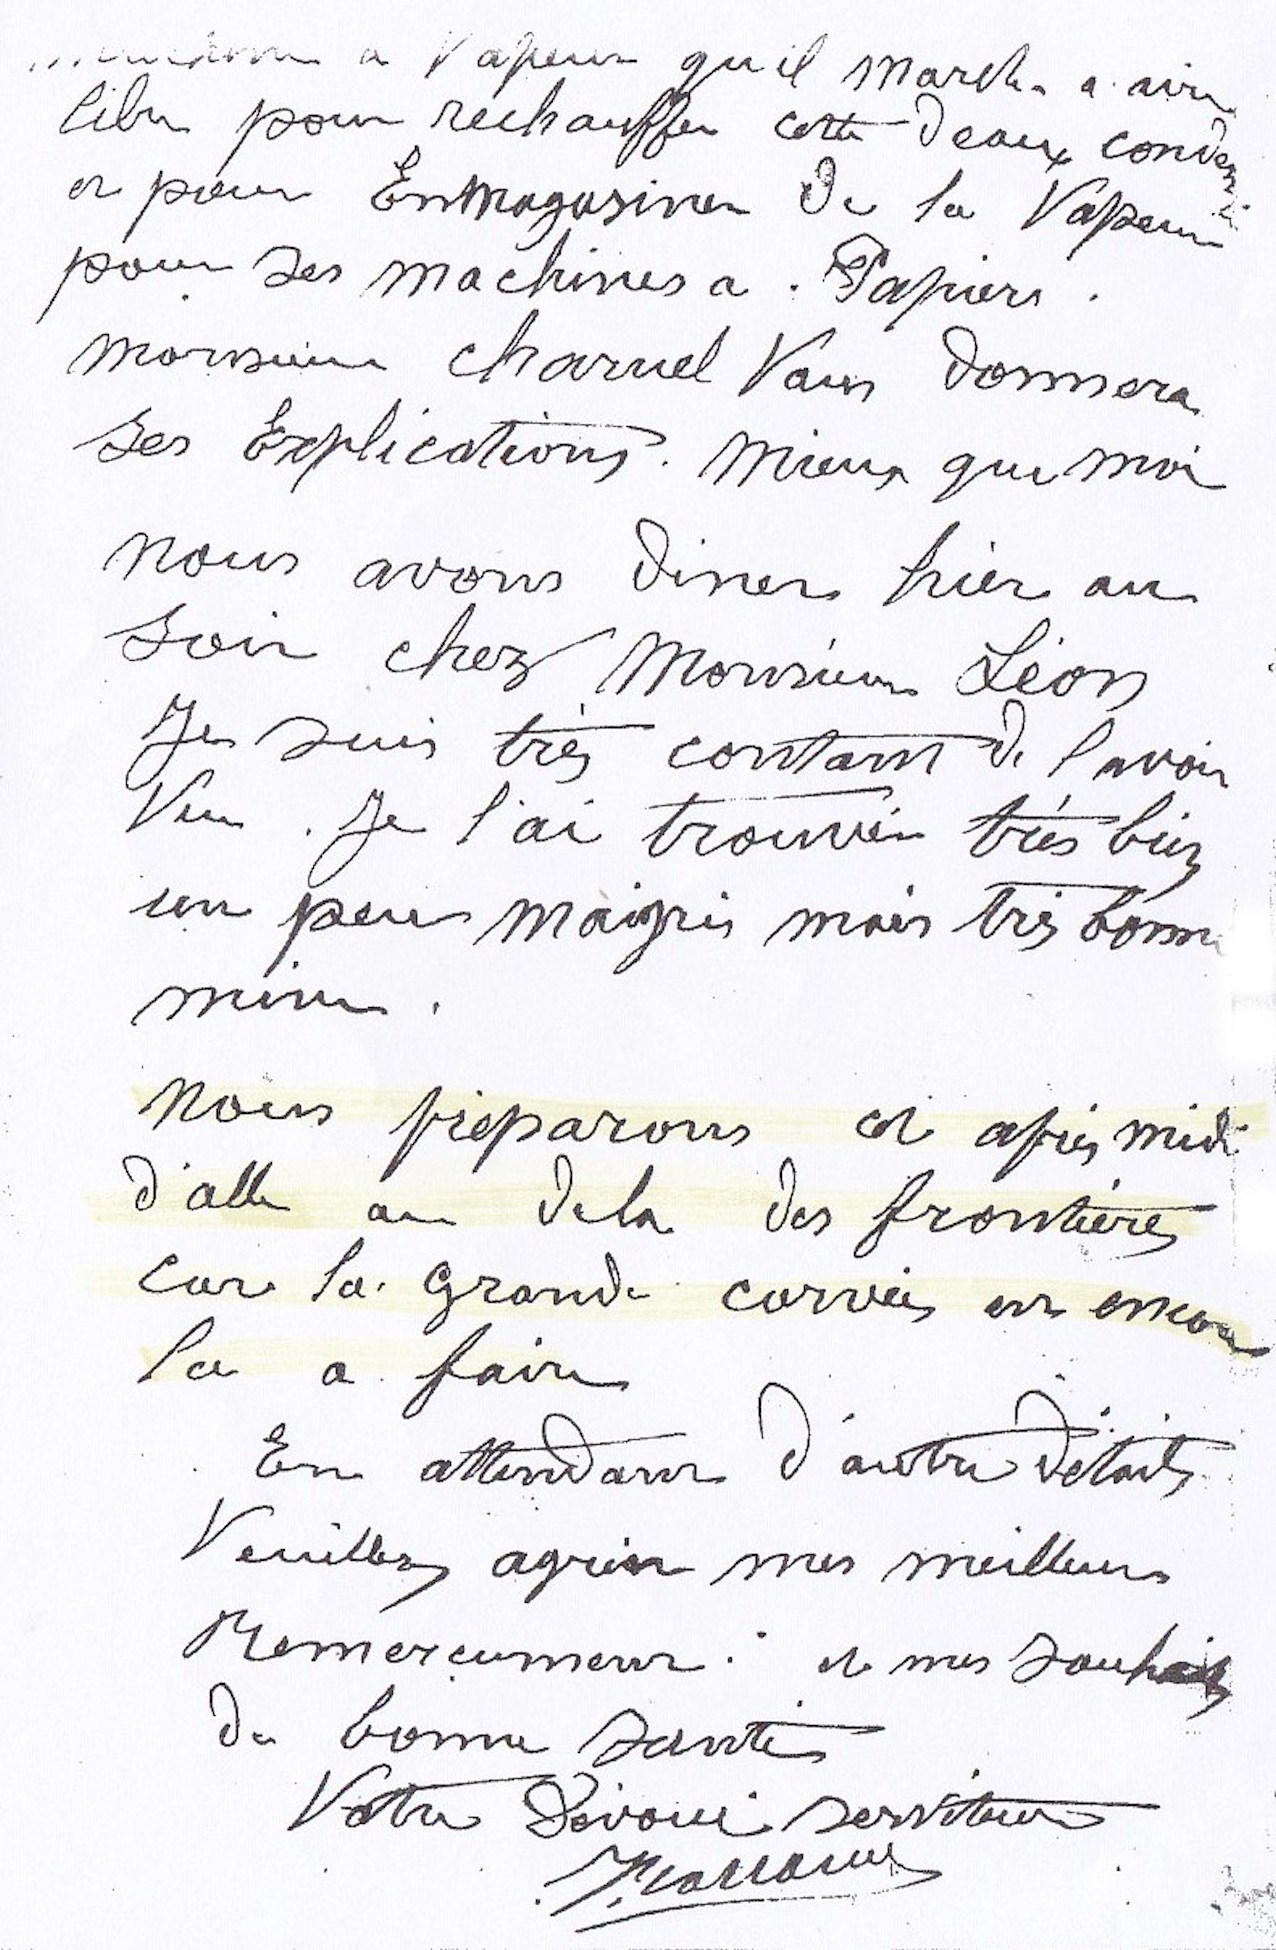 a Vapeur qu il marche a aire
libre pour rechauffer cette deaux conden
et pour Enmagasiner de la Vapeur
pour ses machines a Papiers.
monsieur charuel Vous donnera
ses Explications. mieux que moi
nous avons diner hier au
soir chez Monsieur Léon
Je suis très contant de l avoir
Vue. Je l'ai trouvér très bien
un peux maigris mais très bonne
mine.
nous préparons cet après midi
d'alle au dela des frontières
car la grande corvées est encore
la a faire
En attendant d'autre détails
Veuillez agréer mes meilleurs
Remerciement. et mes souhaits
de bonne santée
Votre Dévoué serviteur